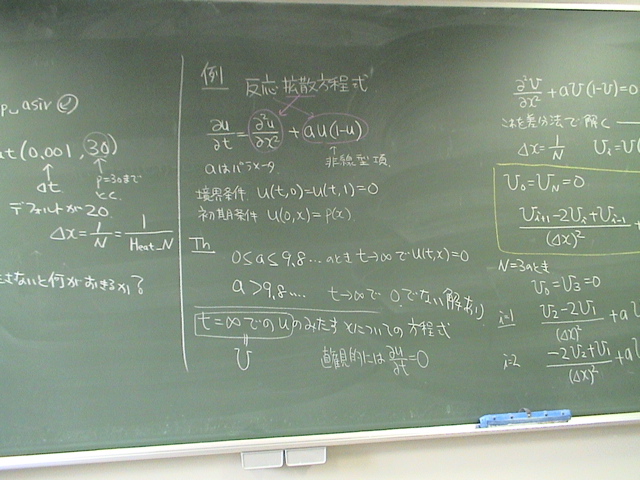 asir
t(0,001, 30)
Δt
p=30まで
デフォルトが20
Δx = 1/N = 1/Heat_N
ないと何がおきるか?
例 反応拡散方程式
∂u/∂t = ∂²u/∂x² + au(1-u)
aはパラメータ
非線型項
境界条件 u(t,0)=u(t,1)=0
初期条件 u(0,x)=P(x)
Th
0≤a≤9,8… aとき t→∞で u(t,x)=0
a>9,8…. t→∞で 0でない解あり
t=∞でのuのみたすxについての方程式
∥
U
直観的には ∂u/∂t=0
∂²U/∂x² + aU(1-U)=0
これを差分法で解く
Δx = 1/N
U₀=U_N=0
U_{i+1}-2U_i+U_{i-1}/(Δx)² +
N=3のとき
U₀=U₃=0
i=1 U₂-2U₁/(Δx)² + a
i=2 -2U₂+U₁/(Δx)² + a